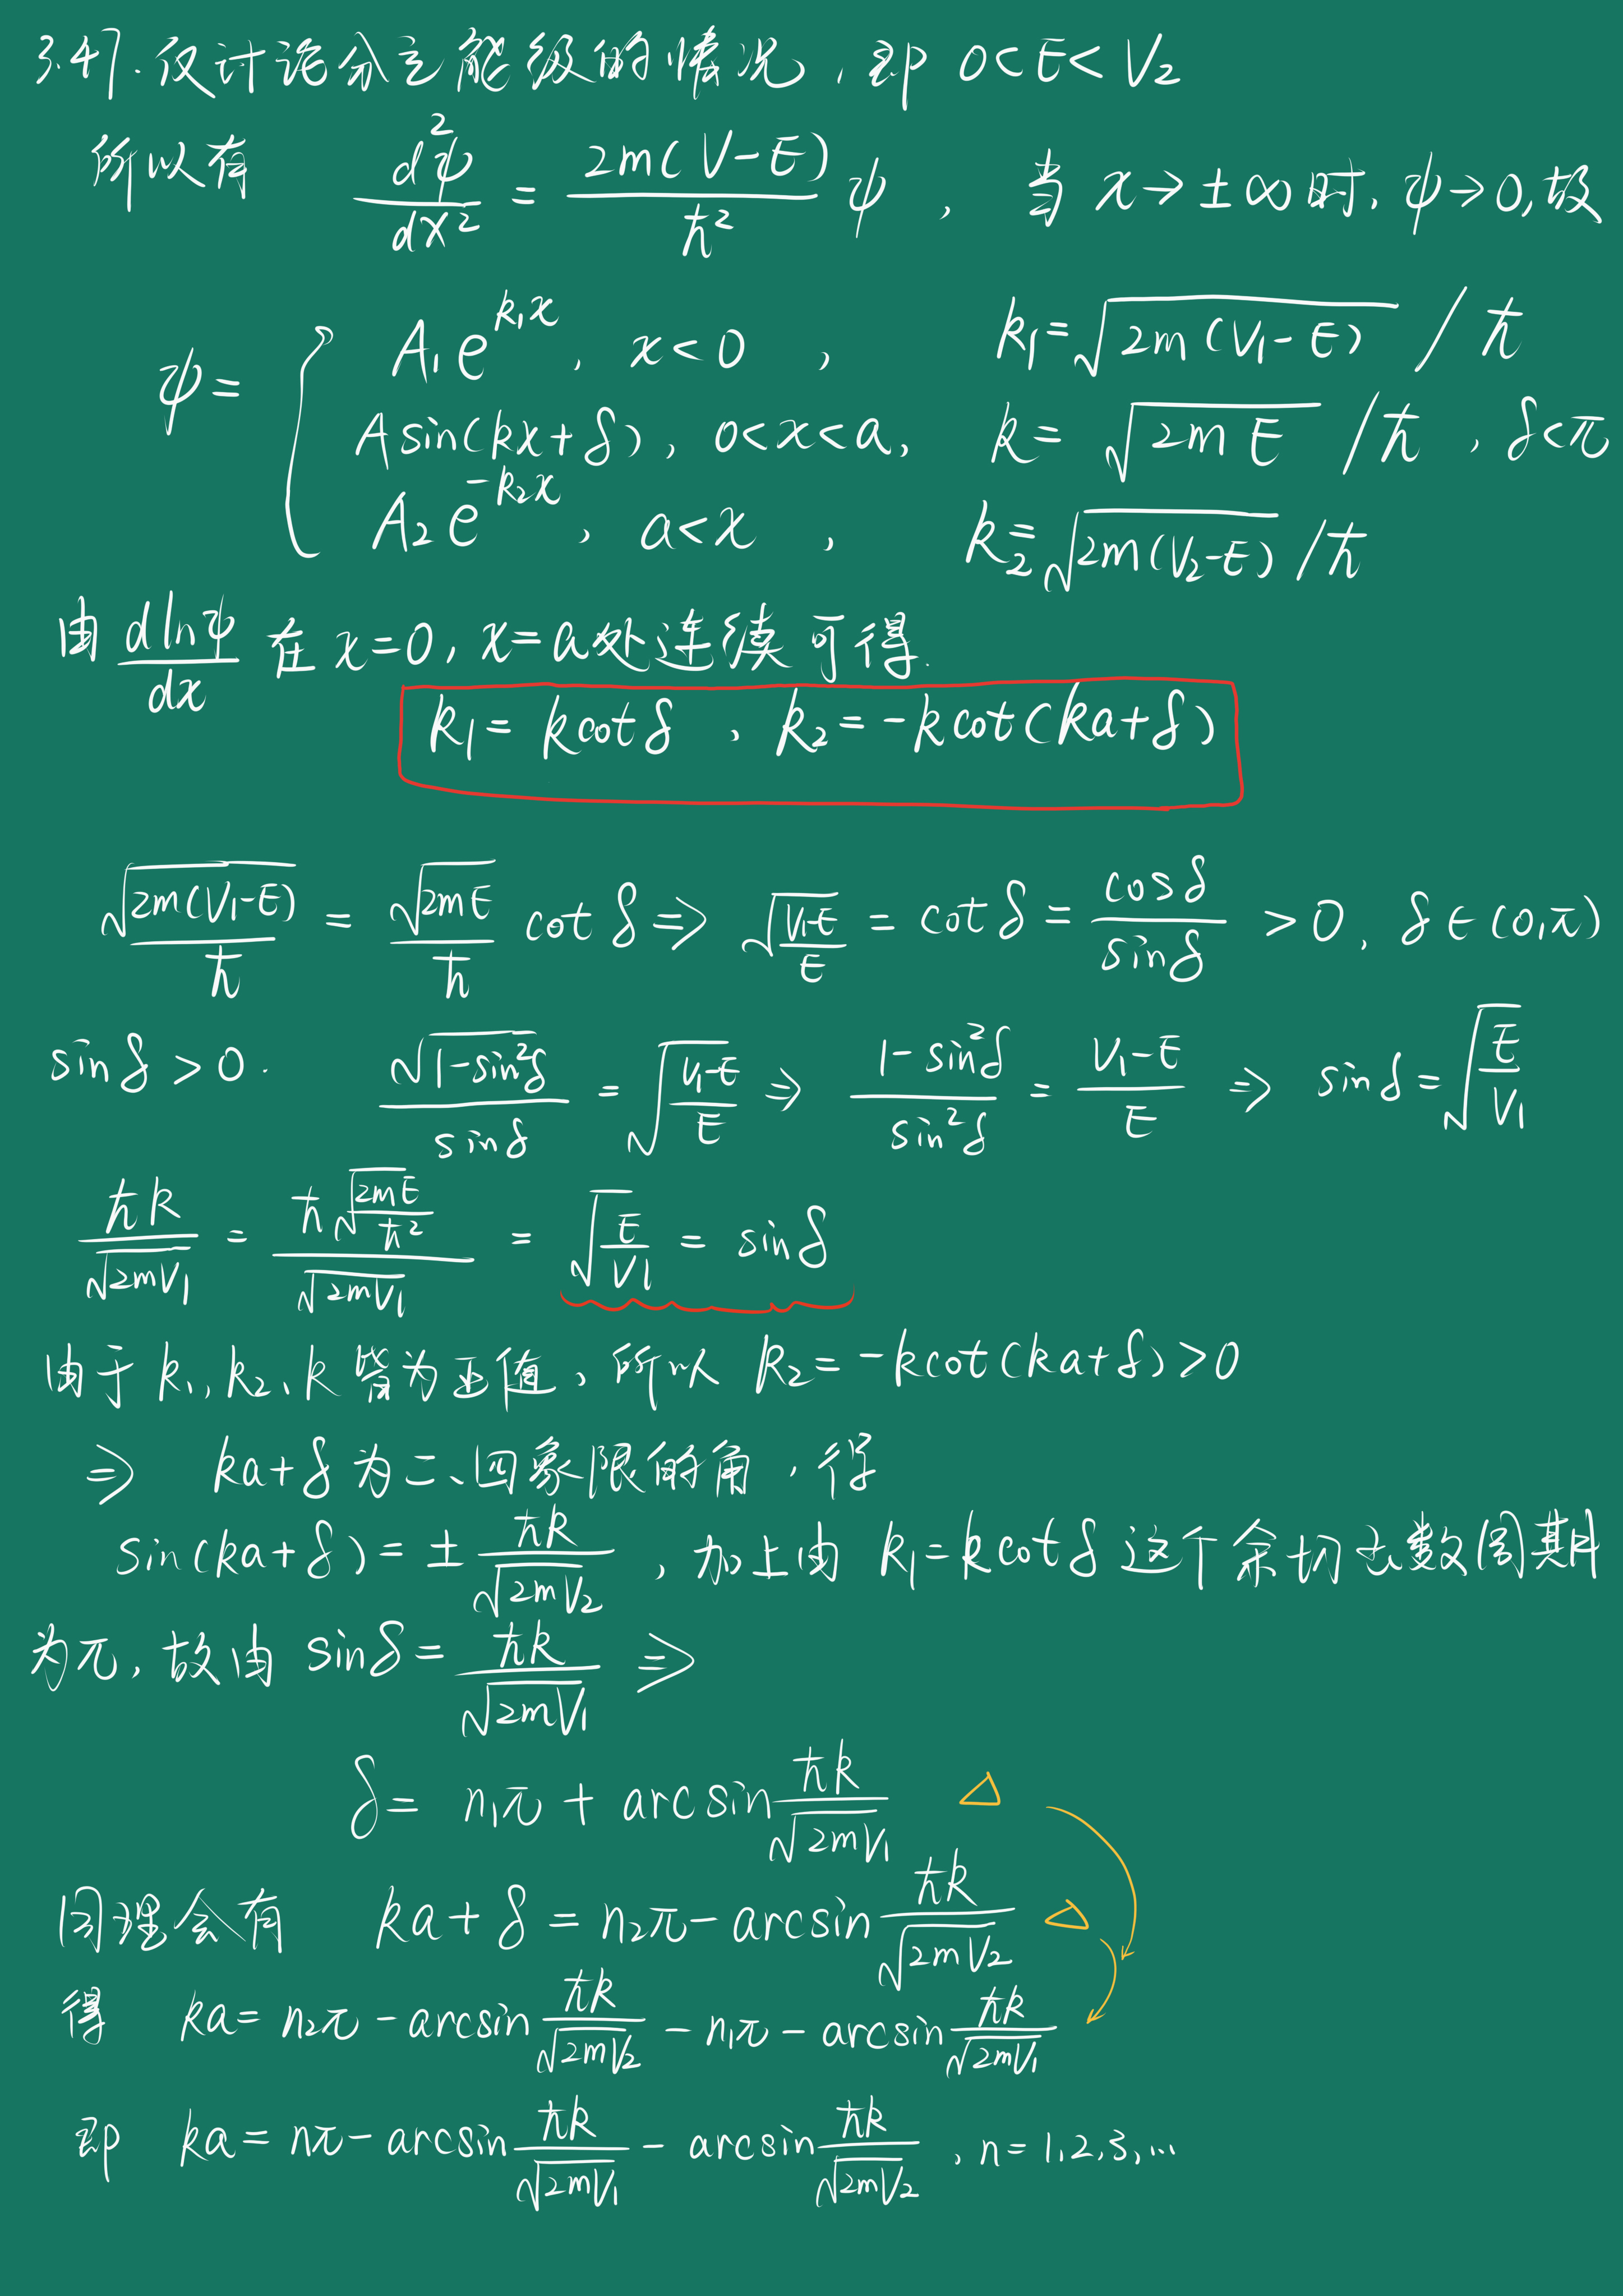 3.4). 仅讨论分立能级的情况, 即 0<E<V₂
所以有 d²ψ/dx² = 2m(V-E)/ħ² ψ , 当 x→±∞时, ψ→0, 故
ψ= { A₁e^{k₁x}, x<0 , k₁=√(2m(V₁-E)) / ħ
Asin(kx+δ), 0<x<a, k=√(2mE) /ħ , δ<π
A₂e^{-k₂x}, a<x , k₂=√(2m(V₂-E)) /ħ
由 dlnψ/dx 在 x=0, x=a处连续可得.
k₁=kcotδ , k₂=-kcot(ka+δ)
√(2m(V₁-E))/ħ = √(2mE)/ħ cotδ ⇒ √((V₁-E)/E) = cotδ = cosδ/sinδ >0, δ∈(0,π)
sinδ>0. √(1-sin²δ)/sinδ = √((V₁-E)/E) ⇒ (1-sin²δ)/sin²δ = (V₁-E)/E ⇒ sinδ=√(E/V₁)
ħk/√(2mV₁) = ħ√(2mE/ħ²)/√(2mV₁) = √(E/V₁) = sinδ
由于 k₁,k₂、k 皆为正值, 所以 k₂=-kcot(ka+δ)>0
⇒ ka+δ为二、四象限的角, 得
sin(ka+δ)=± ħk/√(2mV₂) , 加上由 k₁=kcotδ 这个余切函数周期
为π, 故由 sinδ= ħk/√(2mV₁) ⇒
δ= n₁π + arcsin ħk/√(2mV₁) Δ
同理会有 ka+δ = n₂π-arcsin ħk/√(2mV₂) Δ
得 ka= n₂π-arcsin ħk/√(2mV₂) - n₁π-arcsin ħk/√(2mV₁)
即 ka= nπ-arcsin ħk/√(2mV₁) - arcsin ħk/√(2mV₂) , n=1,2,3,…